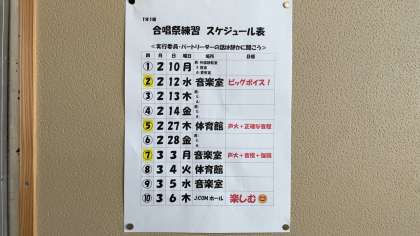 合唱祭練習 スケジュール表
<実行委員・パートリーダーの話は静かに聞こう>
回 月 日 曜日 場所 目標
① 2 10 月
② 2 12 水 音楽室 ビッグボイス!
③ 2 13 木
④ 2 14 金
⑤ 2 27 木 体育館 声大+正確な音程
⑥ 2 28 金
⑦ 3 3 月 音楽室
⑧ 3 4 火 体育館
⑨ 3 5 水 音楽室
⑩ 3 6 木 J:COMホール 楽しむ😊